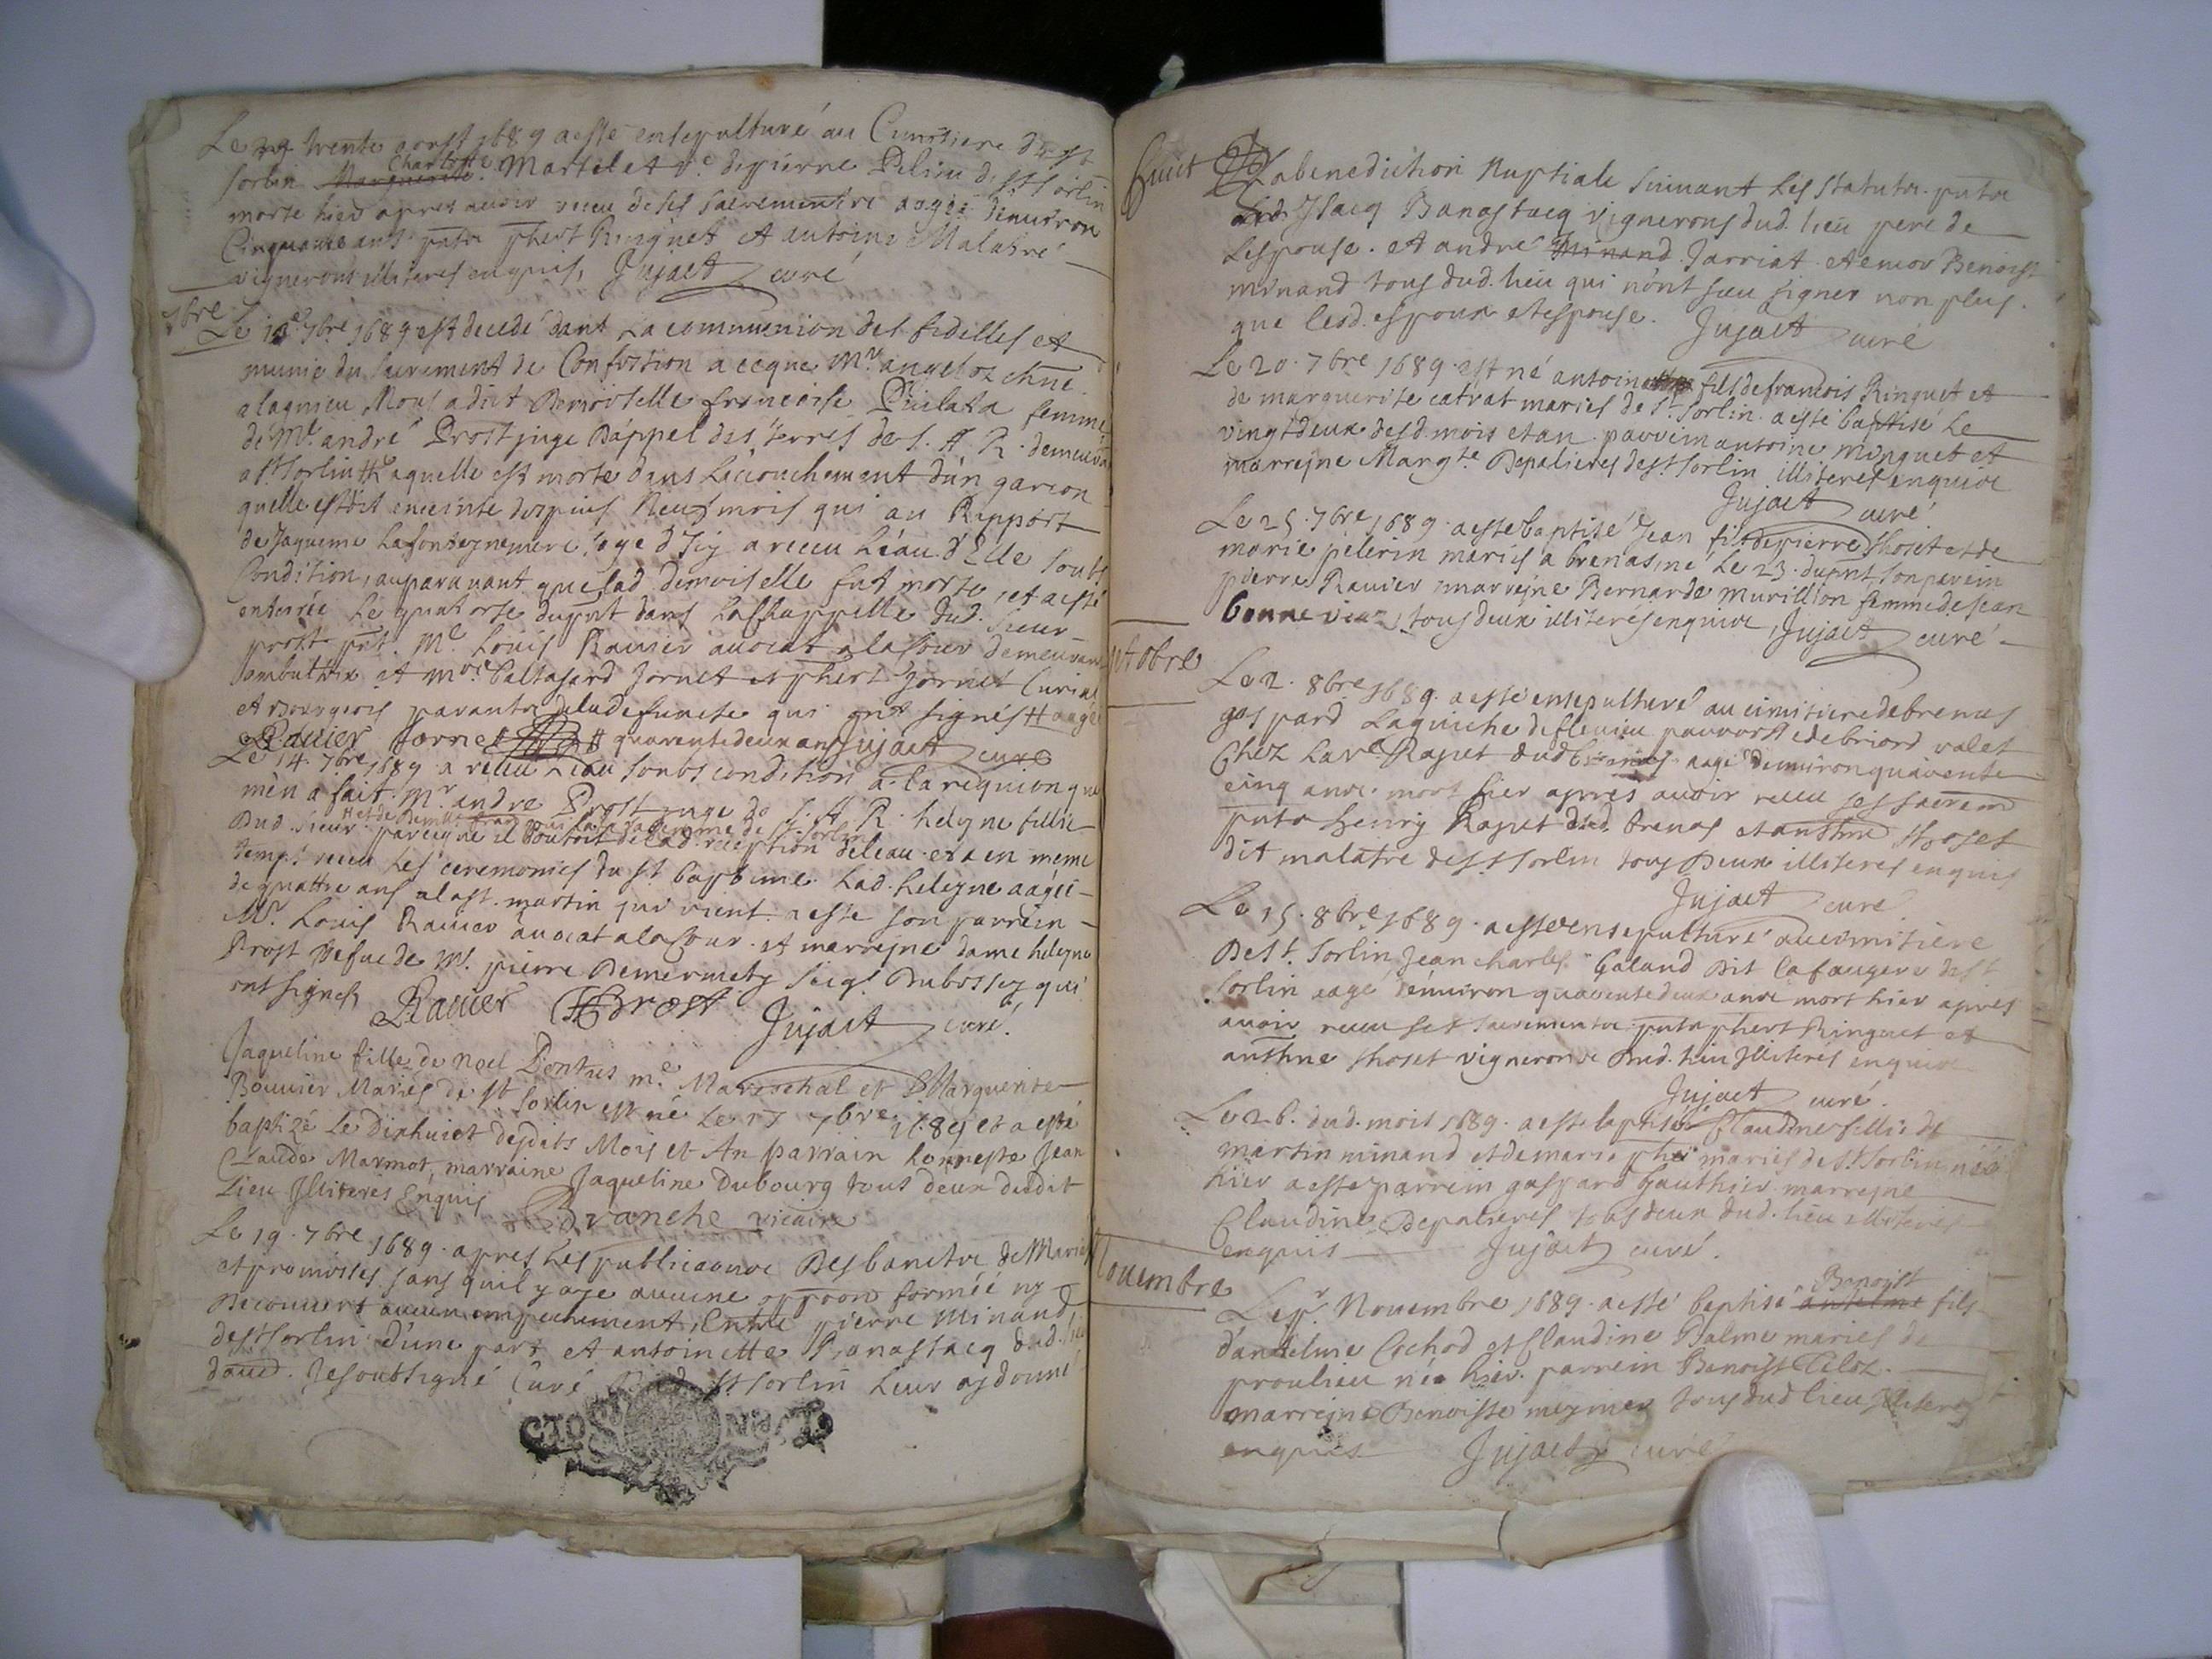 Le trente aoust 1689 a esté ensepulturé au Cimitiere de St
Sorlin Marguerite Charlotte Martelet Ve de pierre Pelisu de St Sorlin
morte hier apres auoir receu de ses sacrements aagée denuiron
Cinquante ans pnts phert Ringuet et antoine Malatré
vignerons illiteres enquis, Jujact curé
7bre
Le 7bre 1689 est decedé dant La communion des fidelles et
munie du sacrement de Confession a ceque Mr
a lagnieu Nous a dit Demoiselle francoise femme
de Mr andré Prost juge Dappel des terres de S. A. R. demeurant
a St Sorlin # Laquelle est morte dans Laccouchement dun garcon
quelle estoit enceinte depuis Neuf mois qui au Rapport
de Jaqueme Lafont a receu Léau d'Elle soubs
Condition, auparauant que lad. demoiselle fut morte, et a esté
enterrée Le quatorse dupnt dans Lachappelle dud. sieur
prost pnt. Me Louis Rauier auocat alacour demeurant
ambutrix et Mre baltasard Jornet et phert Jornet Curial
et Bourgeois parants deladefuncte qui ont signés # aagée
Rauier Jornet # quarentedeux ans Jujact curé
Le 14. 7bre 1689 a receu Leau soubs condition a la requisition que
men a fait Mr andre Prost juge de S. A. R. heleyne fillie
Dud. sieur parceque il doutoit de lad. reception deleau et a en meme
temps receu Les ceremonies du St baptsme. Lad. heleyne aagée
de quattre ans alast. martin qui vient. a esté son parrein
Mr Louis Rauier auocat alacour. et marreyne dame heleyne
Prost Vefue de Mr pierre Demermety seigr Dubossey qui
ont signés Rauier HProst Jujact curé.
Jaqueline fille de noel Pontus me Mareschal et Marguerite
Bouuier Mariés de St Sorlin est né Le 17 7bre 1689 et a esté
baptizé Le dixhuict desdits Mois et An parrain honneste Jean
Claude Marmot, marraine Jaqueline Dubourg tous deux dudit
Lieu Illiteres Enquis Branche vicaire
Le 19. 7bre 1689. apres Les publicaons Des bancs de Mariage
et promisses sans quil y aye aucune oppoon formée ny
Decouuert aucun empechement, Entre pierre Minand
de St Sorlin d'une part et antoinette Banastacq dud. lieu
daud. Je soubsigné Curé dud. St Sorlin Leur ay donné
fuiit La benediction Nuptiale suiuant Les Statuts. pnts
Isacq Banastacq vignerons dud. lieu pere de
Lespouse. et andré Minand Jarriat et encor Benoist
minand tous dud. lieu qui n'ont sceu signer non plus.
que lesd. espoux et espouse. Jujact curé
Le 20. 7bre 1689. est né antoine fils de francois Ringuet et
de marguerite catrat mariés de St Sorlin. a esté baptisé Le
vingtdeux desd. mois et an. parrein antoine minguet et
marreyne Margte Depalieres de St Sorlin illiteres enquis
Jujact curé.
Le 25. 7bre 1689. a esté baptisé Jean fils de pierre et de
marie pelerin mariés a brenas, né Le 23. dupnt son parein
pierre Rauier marreyne Bernarde murillion femme de Jean
bonnevier, tous deux illiterés enquis, Jujact curé
octobre
Le 2. 8bre 1689. a esté ensepulturé au cimitiere de brenas
gaspard Laguiche de fleurieu parroisse de briord valet
Chez La ve Raput dud. brenas aagé denuiron quarente
cinq ans mort hier apres auoir receu ses sacremts
pnts henrij Raput dud. brenas et anthme
dit malatre de St Sorlin tous Deux illiteres enquis
Jujact curé
Le 15. 8bre 1689. a esté ensepulturé au cimitiere
De St. Sorlin Jean charles Galand Dit Lafaugere de St
Sorlin aagé denuiron quarentedeux ans mort hier apres
auoir receu ses sacrements pnts phert Ringuet et
anthme vignerons Dud. lieu Illiterés enquis
Jujact curé.
Le 26. dud. mois 1689. a esté baptisée Claudine fillie de
martin minand et de marie mariés de St Sorlin née
hier a esté parrein gaspard Gauthier marreyne
Claudine Depalieres tous deux dud. lieu illiteres
enquis Jujact curé.
Nouembre
Le pr Nouembre 1689. a esté baptisé anselme Benoist fils
d'antelme Cochod et Claudine Balme mariés de
proulieu né hier. parrein Benoist
marreyne Benoiste meynier tous dud lieu Illiteres
enquis Jujact curé